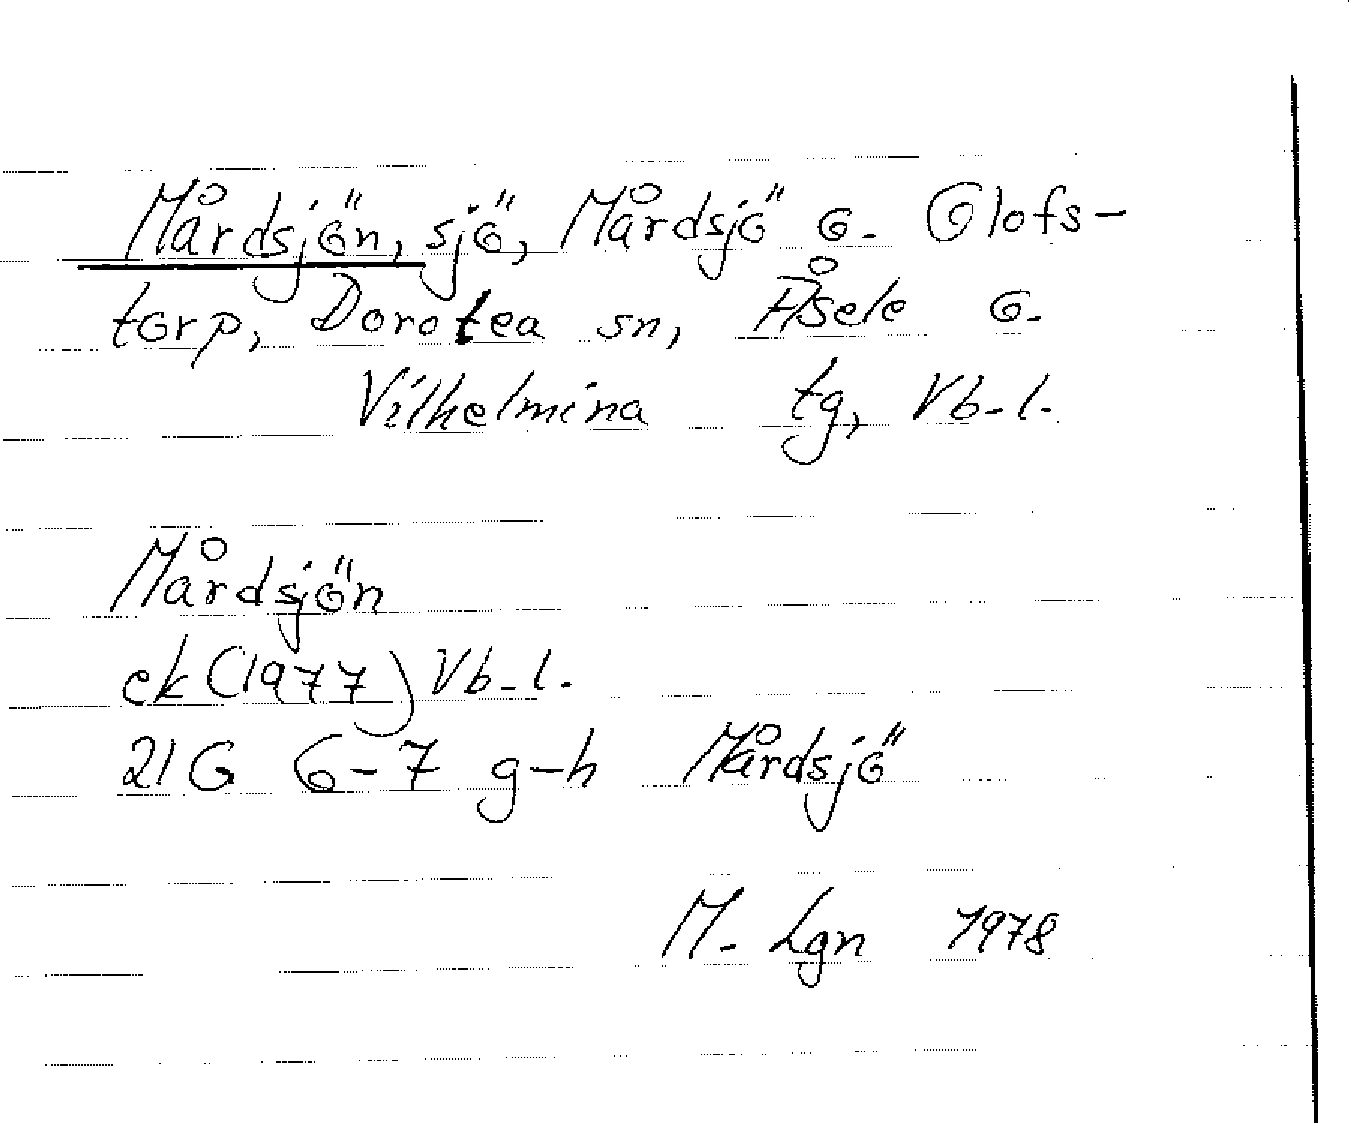 Mårdsjön, sjö, Mårdsjö o. Olofs-
torp, Dorotea sn, Åsele o.
Vilhelmina tg, Vb-l.
Mårdsjön
ek (1977) Vb-l.
21G 6-7 g-h Mårdsjö
M. Lgn 1978